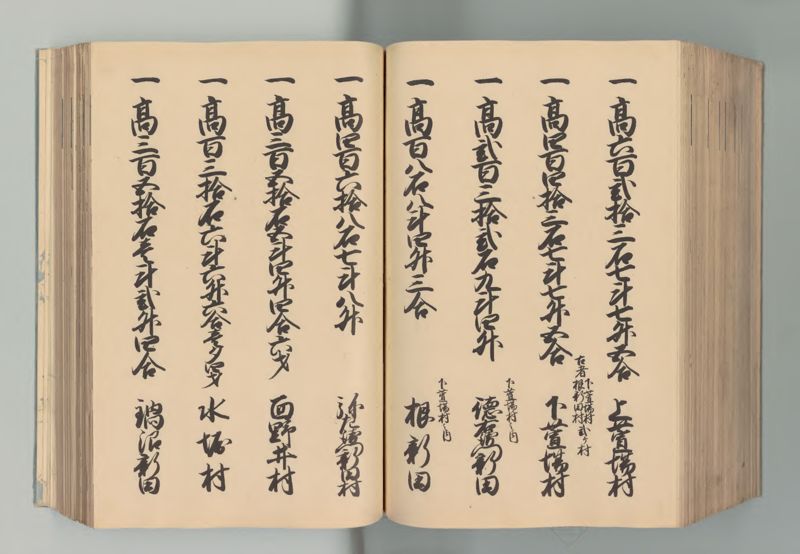 一 高六百弐拾三石七斗七升五合 上萱場村
一 高四百四拾三石七斗七升五合 下萱場村
古者下萱場村根新田村弐ケ村
一 高弐百三拾弐石九斗四升 新田
下萱場村之内
一 高百八石八斗四升三合 根新田
下萱場村之内
一 高四百六拾八石七斗八升 新田村
一 高三百五拾石五斗四升四合六才 面野井村
一 高百三拾石六斗六升六合壱夕 才 水堀村
一 高三百五拾石壱斗弐升四合 鍋沼新田